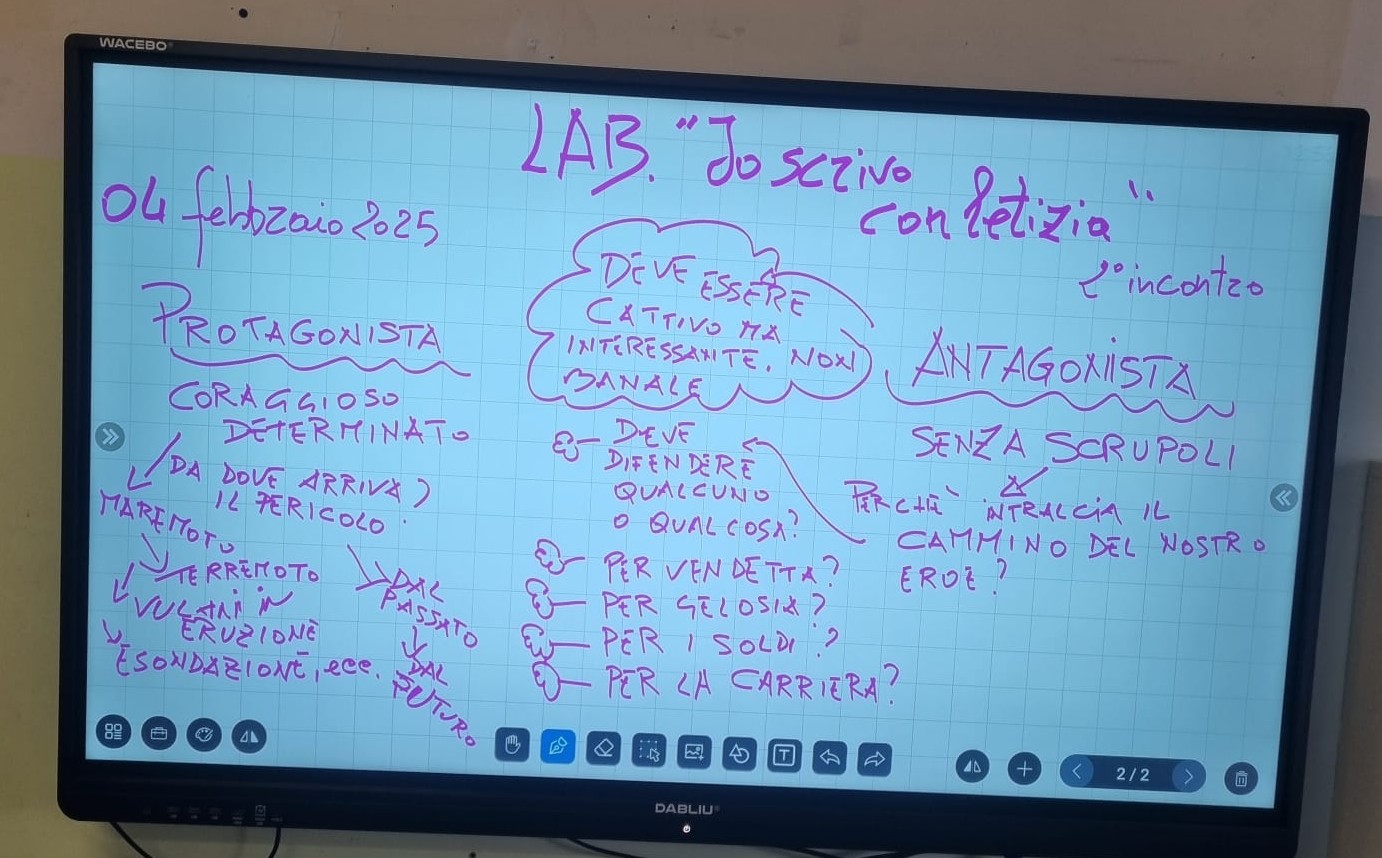 WACEBO
LAB. "Io scrivo
con letizia"
04 febbraio 2025
2° incontro
PROTAGONISTA
CORAGGIOSO
DETERMINATO
DA DOVE ARRIVA
IL PERICOLO?
MAREMOTO
TERREMOTO
VULCANI IN
ERUZIONE
ESONDAZIONE, ecc.
DAL
PASSATO
DAL
FUTURO
DEVE ESSERE
CATTIVO MA
INTERESSANTE, NON
BANALE
DEVE
DIFENDERE
QUALCUNO
O QUALCOSA?
PER VENDETTA?
PER GELOSIA?
PER I SOLDI?
PER LA CARRIERA?
ANTAGONISTA
SENZA SCRUPOLI
PERCHÈ INTRALCIA IL
CAMMINO DEL NOSTRO
EROE?
2/2
DABLIU